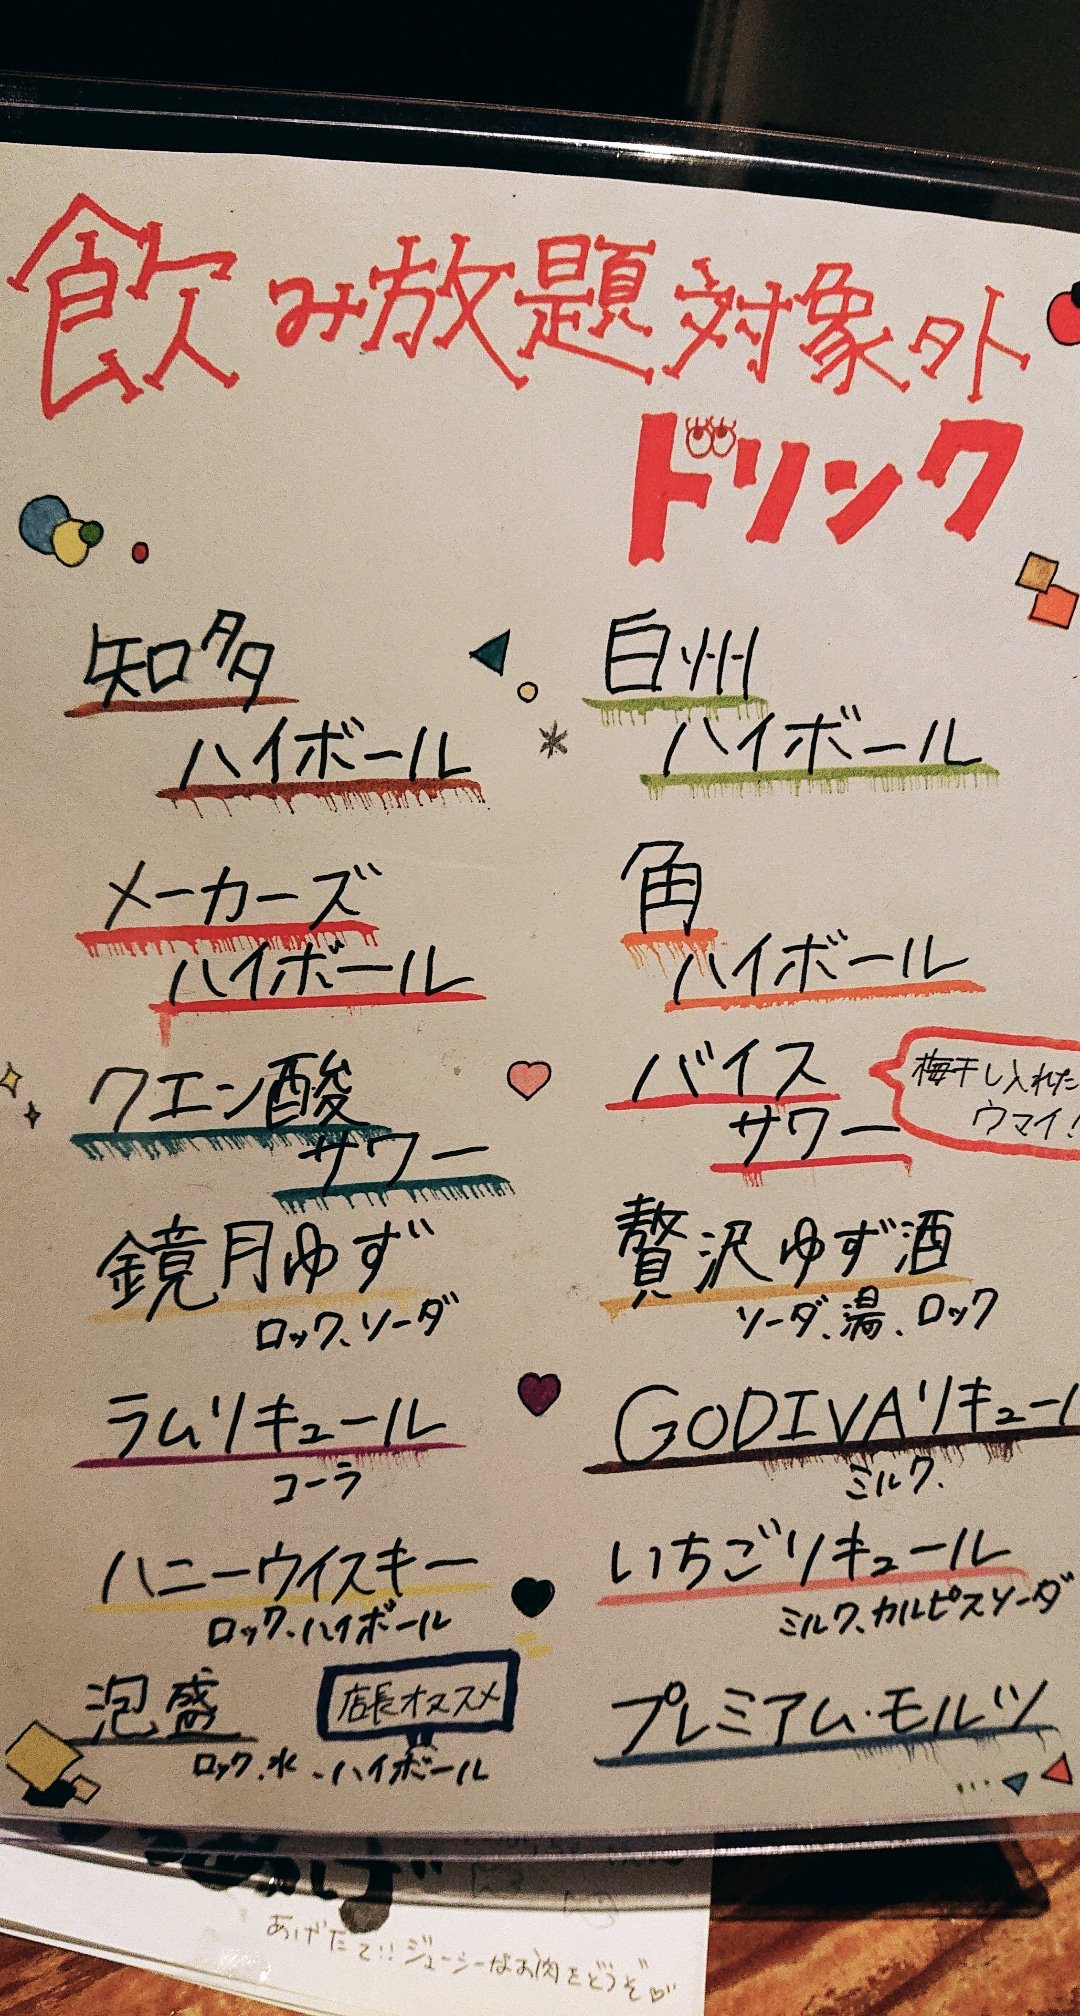 飲み放題対象外
ドリンク
知多
ハイボール
白州
ハイボール
メーカーズ
ハイボール
角
ハイボール
クエン酸
サワー
バイス
サワー
梅干し入れた
ウマイ!
鏡月ゆず
ロック、ソーダ
贅沢ゆず酒
ソーダ、湯、ロック
ラムリキュール
コーラ
GODIVAリキュール
ミルク
ハニーウイスキー
ロック、ハイボール
いちごリキュール
ミルク、カルピスソーダ
泡盛
店長オススメ
ロック、水、ハイボール
プレミアム・モルツ
あげたて!!ジューシーなお肉をどうぞ♡